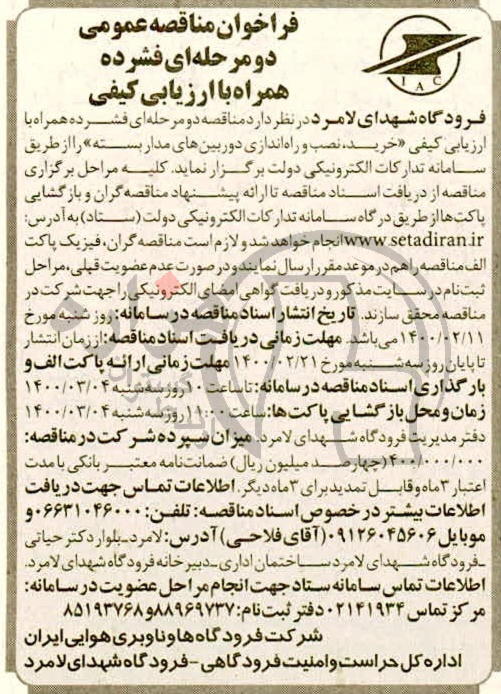 فراخوان مناقصه عمومی
دو مرحله‌ای فشرده
همراه با ارزیابی کیفی
IAC
فرودگاه شهدای لامرد در نظر دارد مناقصه دو مرحله‌ای فشرده همراه با
ارزیابی کیفی «خرید، نصب و راه‌اندازی دوربین‌های مدار بسته» را از طریق
سامانه تدارکات الکترونیکی دولت برگزار نماید. کلیه مراحل برگزاری
مناقصه از دریافت اسناد مناقصه تا ارائه پیشنهاد مناقصه‌گران و بازگشایی
پاکت‌ها از طریق درگاه سامانه تدارکات الکترونیکی دولت (ستاد) به آدرس:
www.setadiran.ir انجام خواهد شد و لازم است مناقصه‌گران، فیزیک پاکت
الف مناقصه را هم در موعد مقرر ارسال نمایند و در صورت عدم عضویت قبلی، مراحل
ثبت‌نام در سایت مذکور و دریافت گواهی امضای الکترونیکی را جهت شرکت در
مناقصه محقق سازند. تاریخ انتشار اسناد مناقصه در سامانه: روز شنبه مورخ
۱۴۰۰/۰۲/۱۱ می‌باشد. مهلت زمانی دریافت اسناد مناقصه: از زمان انتشار
تا پایان روز سه‌شنبه مورخ ۱۴۰۰/۰۲/۲۱ مهلت زمانی ارائه پاکت الف و
بارگذاری اسناد مناقصه در سامانه: تا ساعت ۱۰ روز سه‌شنبه ۱۴۰۰/۰۳/۰۴
زمان و محل بازگشایی پاکت‌ها: ساعت ۱۱:۰۰ روز سه شنبه ۱۴۰۰/۰۳/۰۴
دفتر مدیریت فرودگاه شهدای لامرد. میزان سپرده شرکت در مناقصه:
۴۰۰/۰۰۰/۰۰۰ (چهارصد میلیون ریال) ضمانت‌نامه معتبر بانکی با مدت
اعتبار ۳ ماه و قابل تمدید برای ۳ ماه دیگر. اطلاعات تماس جهت دریافت
اطلاعات بیشتر در خصوص اسناد مناقصه: تلفن: ۰۶۶۳۱۰۴۶۰۰۰ و
موبایل ۰۹۱۲۶۰۴۵۶۰۶ (آقای فلاحی) آدرس: لامرد-بلوار دکتر حیاتی
-فرودگاه شهدای لامرد ساختمان اداری-دبیرخانه فرودگاه شهدای لامرد.
اطلاعات تماس سامانه ستاد جهت انجام مراحل عضویت در سامانه:
مرکز تماس ۰۲۱۴۱۹۳۴ دفتر ثبت نام: ۸۸۹۶۹۷۳۷ و ۸۵۱۹۳۷۶۸
شرکت فرودگاه‌ها و ناوبری هوایی ایران
اداره کل حراست و امنیت فرودگاهی - فرودگاه شهدای لامرد